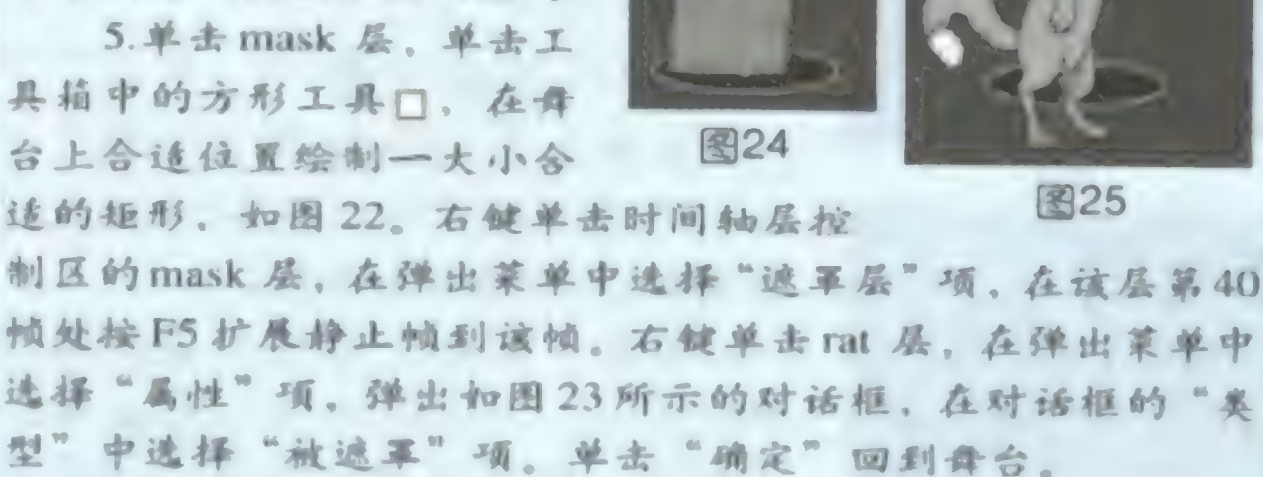 5.单击 mask 层，单击工
具箱中的方形工具□，在舞
台上合适位置绘制一大小合
适的矩形，如图 22。右键单击时间轴层控
制区的 mask 层，在弹出菜单中选择“遮罩层”项，在该层第 40
帧处按 F5 扩展静止帧到该帧。右键单击 rat 层，在弹出菜单中
选择“属性”项，弹出如图 23 所示的对话框，在对话框的“类
型”中选择“被遮罩”项。单击“确定”回到舞台。
图24
图25